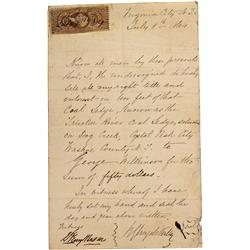 Virginia City N.T.
July 8th 1864
Know all men by these presents
that, I, the undersigned do hereby
sell all my right title and
interest in ten feet of
Coal Ledge, known as the
Truckee River Coal Ledge, situated
on Dog Creek, Crystal Peak City
Washoe County N.T. to
George Wilkinson for the
Sum of fifty dollars.
In witness whereof I have
hereby set my hand and seal the
day and year above written
Witness